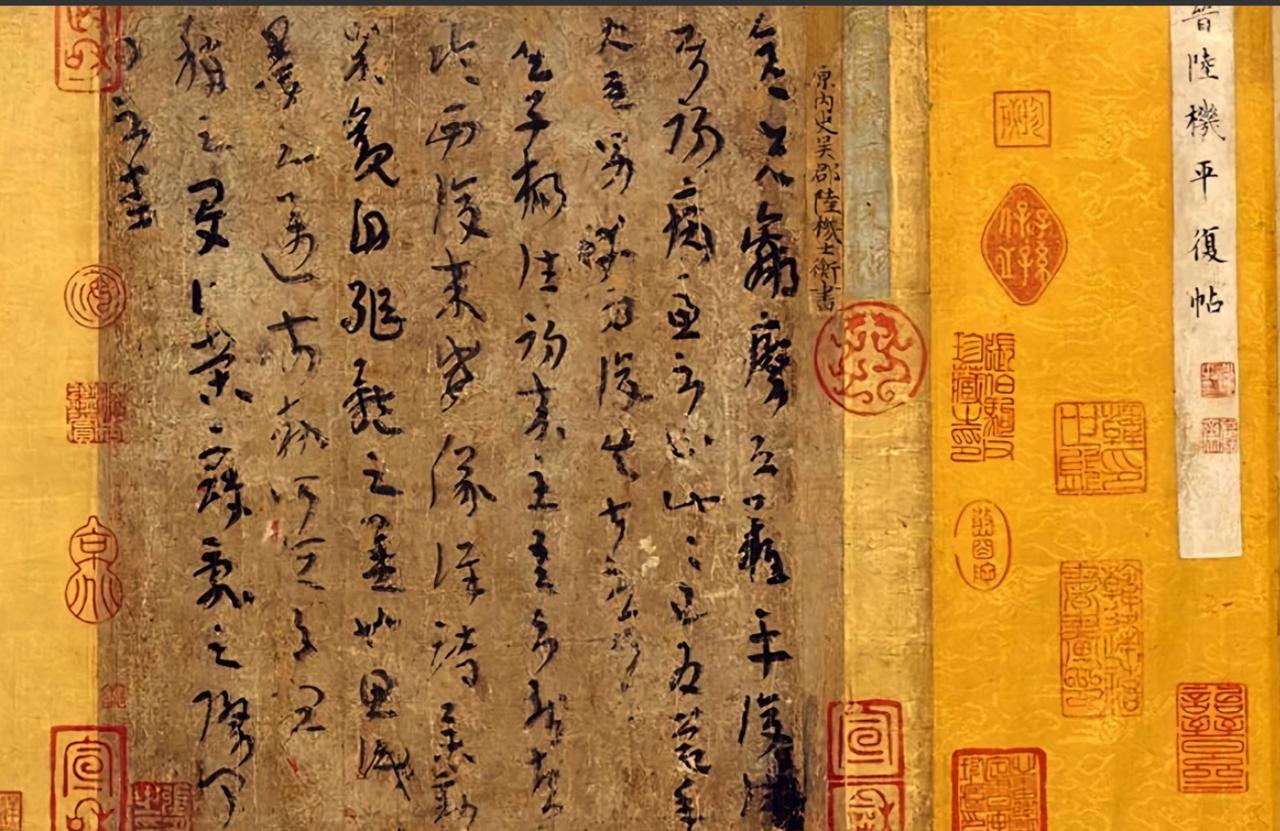 晉陸機平復帖
原內史吳郡陸機士衡書
彥先羸瘵恐難平復往
屬初病慮不止此此已為慶承
使唯男幸為復失前憂耳
吳子楊往初來主吾不能盡
臨西復來威儀詳跱舉動
成觀自軀體之美也思識
量之邁前勢所恒有宜
稱之夏伯榮寇亂之際聞
問不悉